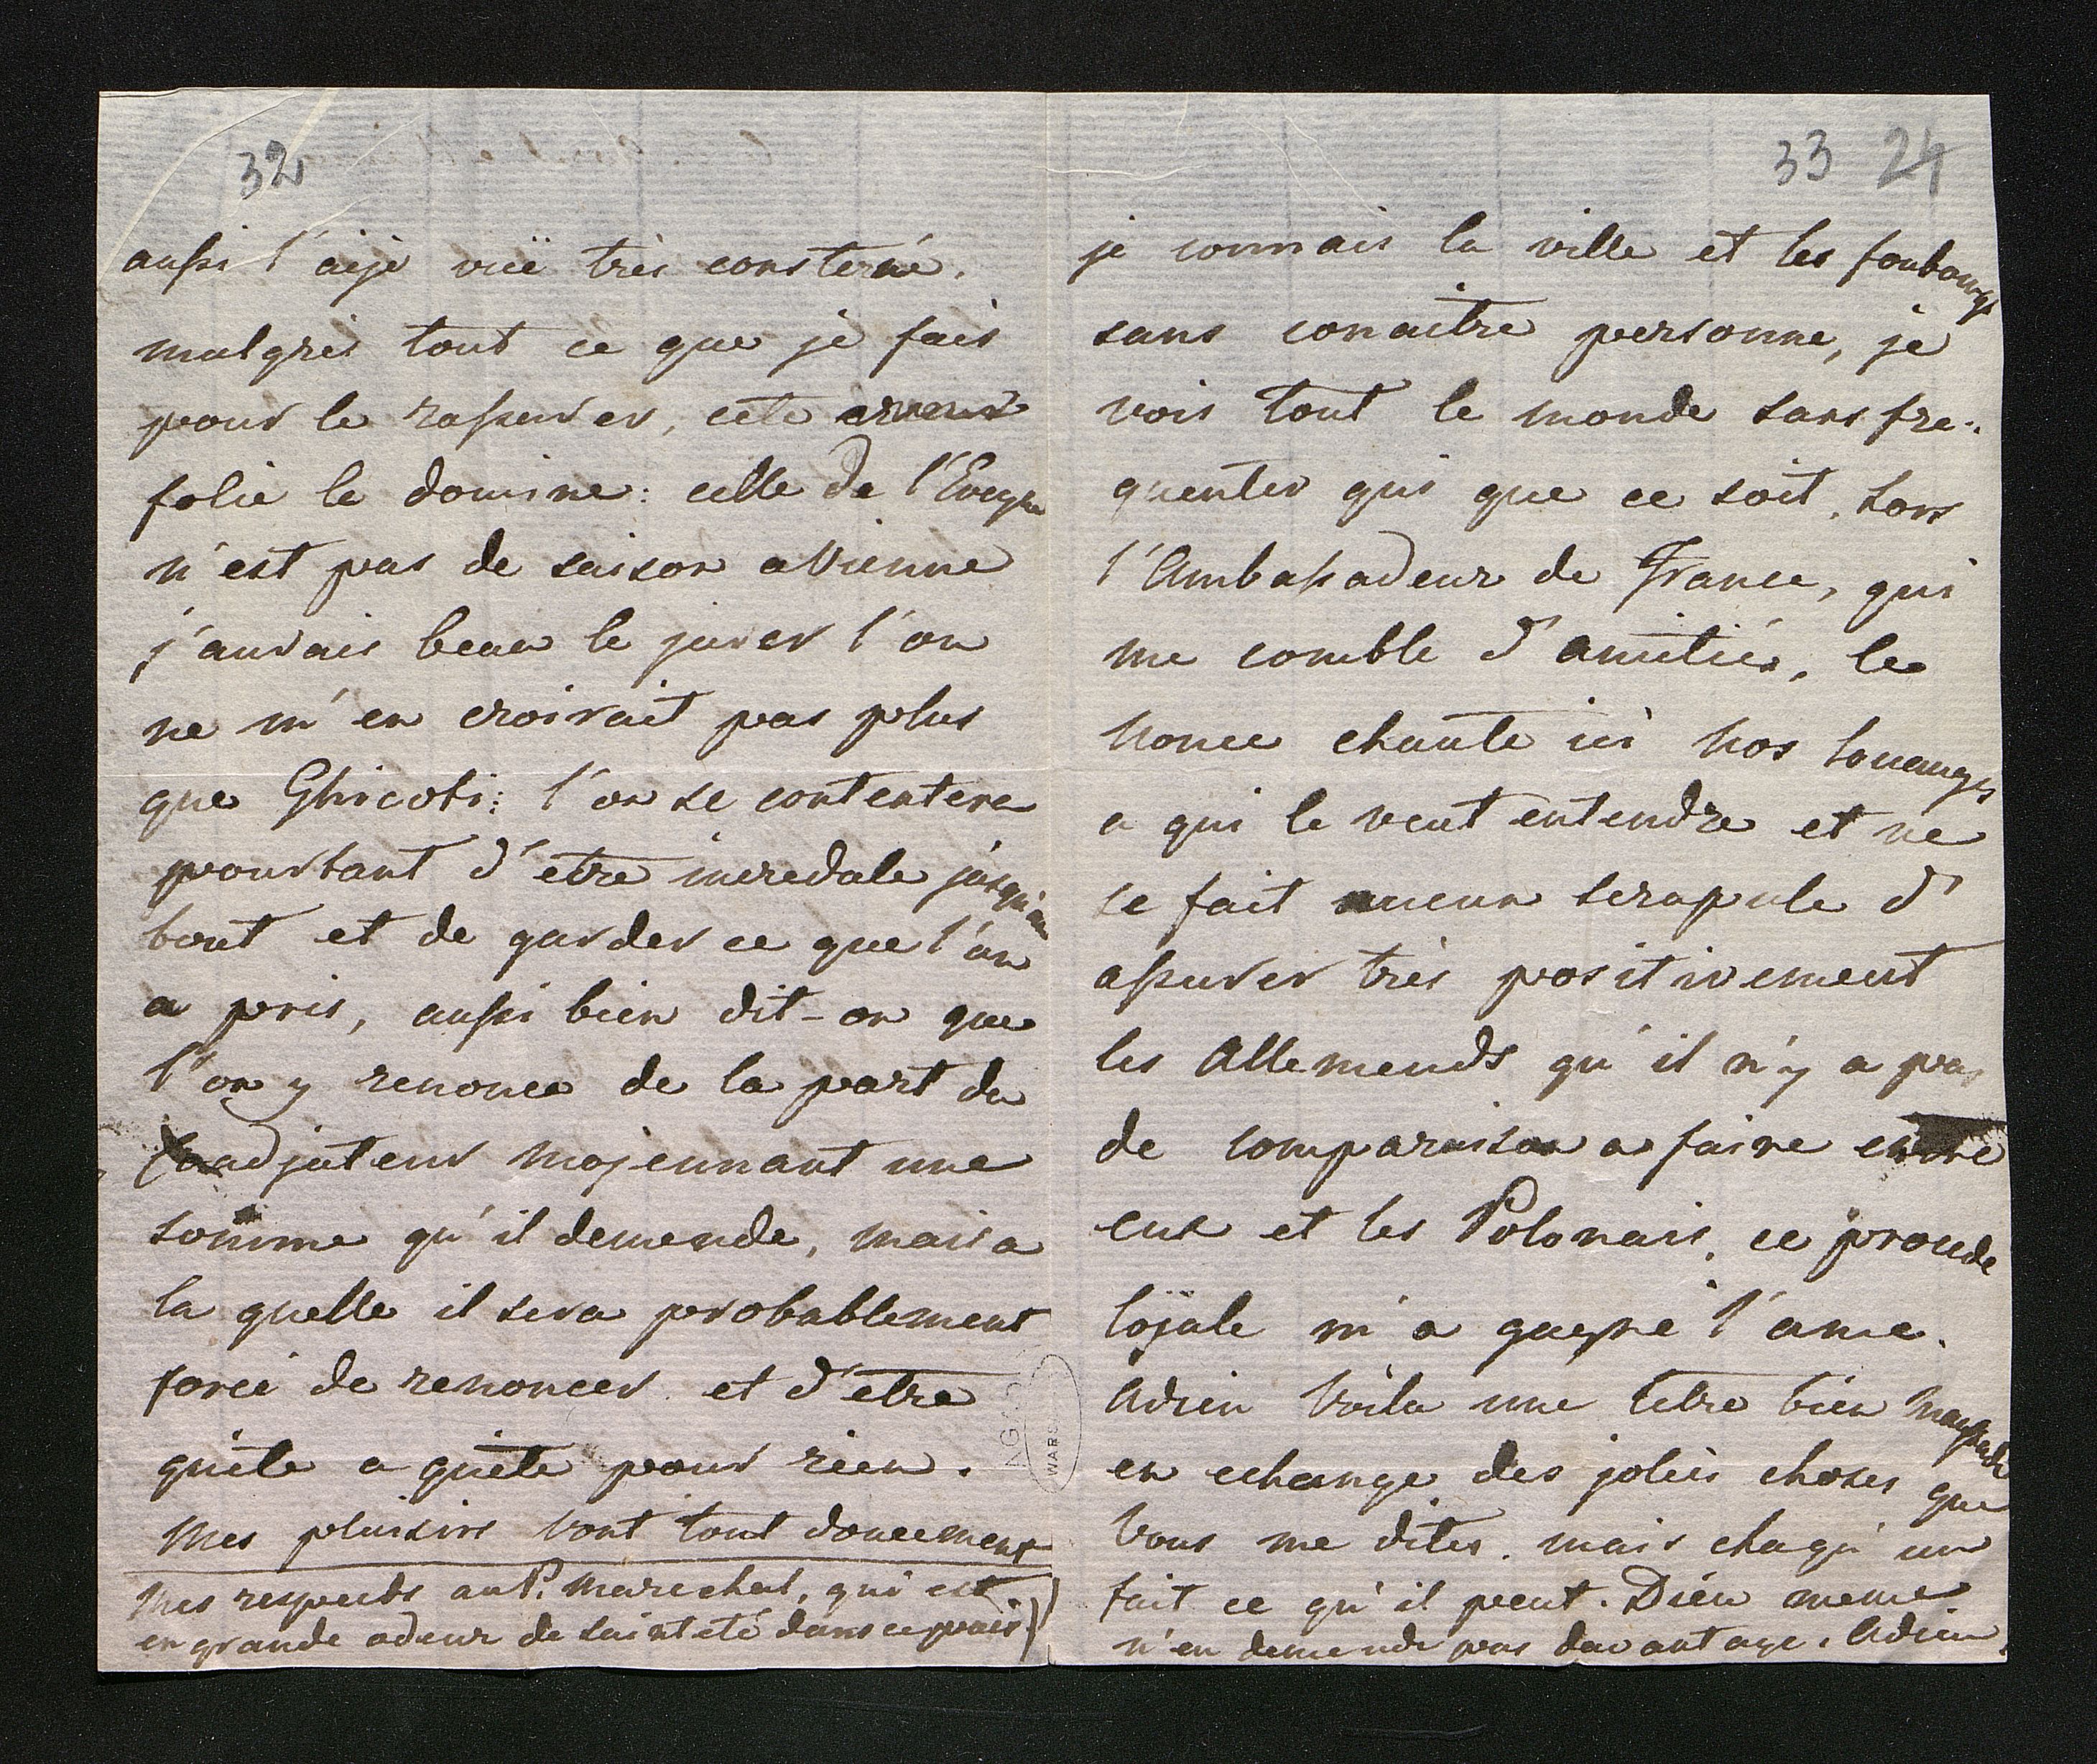 32
aussi l'aije vüe très consterné,
malgrés tout ce que je fais
pour le rassurer, cete
folie le domine: celle de l'Eveque
n'est pas de saison a Vienne
j'aurais beau le jurer l'on
ne m'en croirait pas plus
que Ghicoti: l'on se contentera
pourtant d'etre incredule jusqu'au
bout et de garder ce que l'on
a pris, aussi bien dit-on que
l'on y renonce de la part du
Coadjuteur mojennant une
somme qu'il demende, mais a
la quelle il sera probablement
forcé de renoncer et d'etre
quite a quite pour rien.
Mes plaisirs vont tout doucement
Mes respects au P. Marechal, qui est
en grande odeur de sainteté dans ce païs
33 24
je connais la ville et les foubourgs
sans conaitre personne, je
vois tout le monde sans fre-
quenter qui que ce soit, hors
l'Ambassadeur de France, qui
me comble d'amitiés, le
Nonce chante ici nos louanges
a qui le veut entendre et ne
se fait aucun scrupule d'
assurer très positivement
les Allemends qu'il n'y a pas
de comparaison a faire entre
eux et les Polonais, ce procede
lojale m'a gagné l'ame.
Adieu voila une letre bien maussade
en echange des jolies choses que
Vous me dites. mais chaqu'un
fait ce qu'il peut. Dieu meme
n'en demende pas davantage. Adieu.